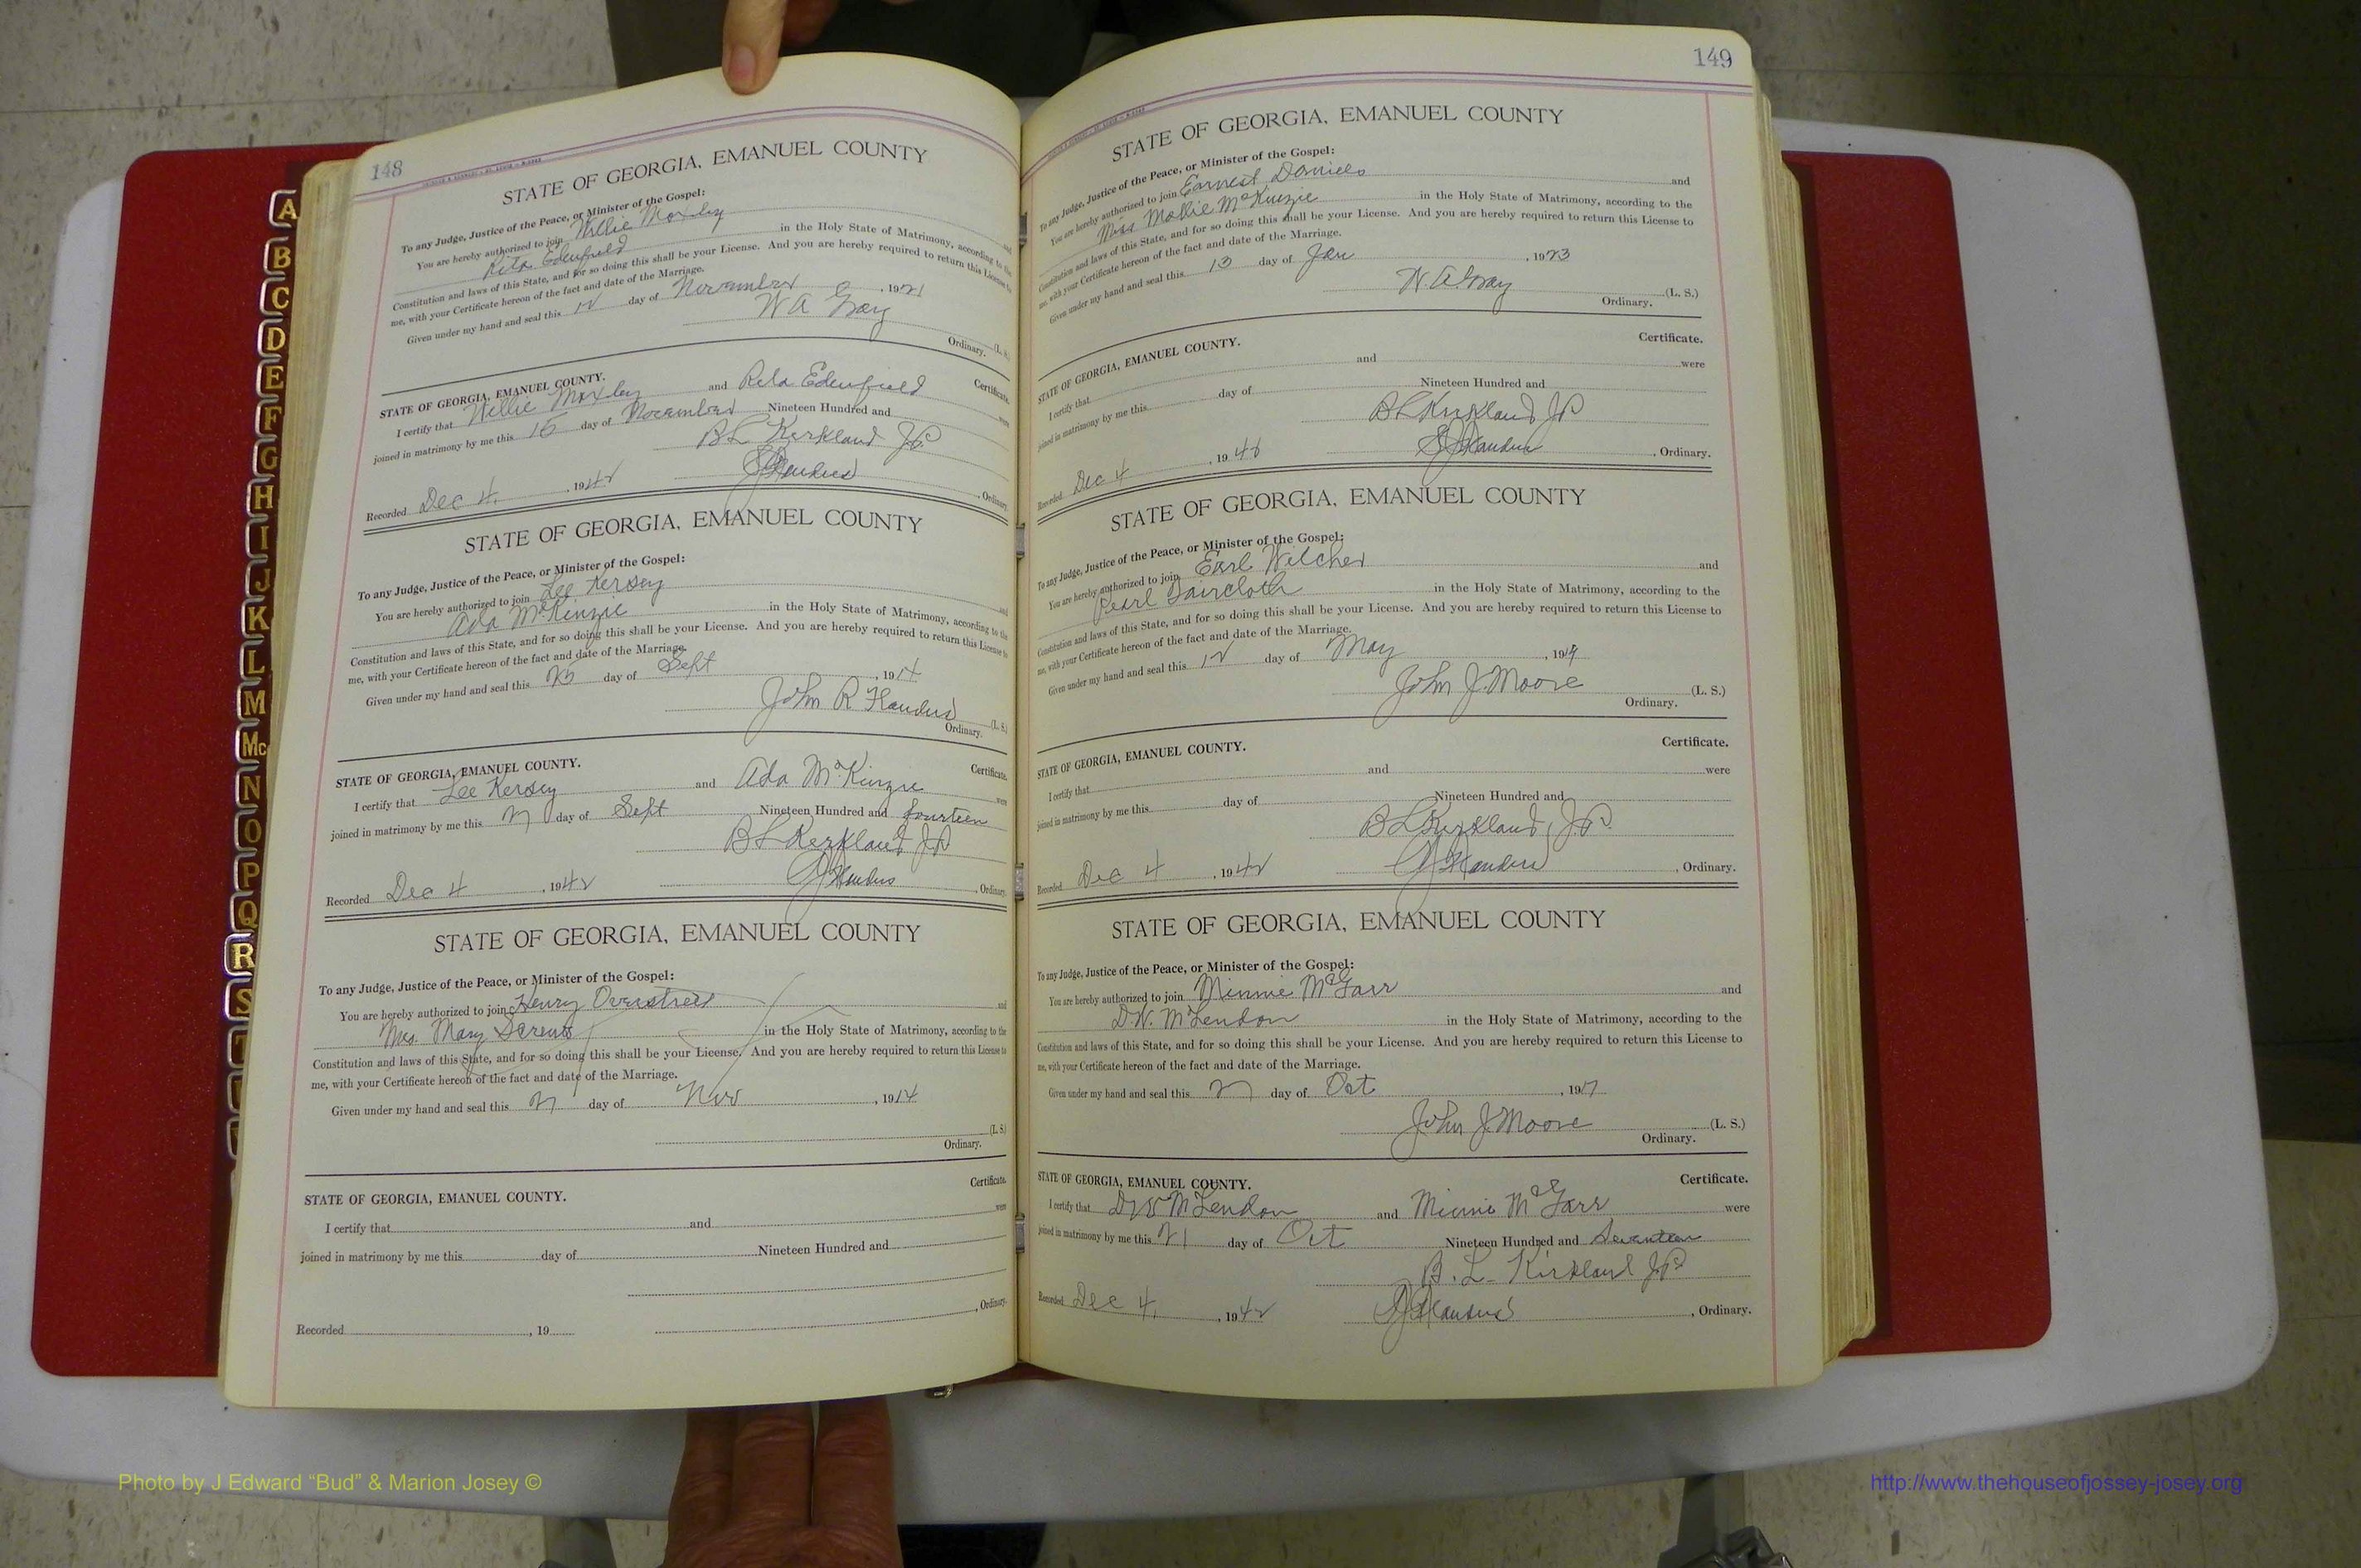 148
STATE OF GEORGIA, EMANUEL COUNTY
To any Judge, Justice of the Peace, or Minister of the Gospel:
You are hereby authorized to join Willie Moxley and
Rita Edenfield in the Holy State of Matrimony, according to the
Constitution and laws of this State, and for so doing this shall be your License. And you are hereby required to return this License to
me, with your Certificate hereon of the fact and date of the Marriage.
Given under my hand and seal this 12 day of November, 1921
W A Gay (L. S.)
Ordinary.
STATE OF GEORGIA, EMANUEL COUNTY. Certificate.
I certify that Willie Moxley and Rita Edenfield were
joined in matrimony by me this 15 day of November Nineteen Hundred and
B L Kirkland J.P.
Recorded Dec 4, 1942, Ordinary.
STATE OF GEORGIA, EMANUEL COUNTY
To any Judge, Justice of the Peace, or Minister of the Gospel:
You are hereby authorized to join Lee Kersey and
Ada McKinzie in the Holy State of Matrimony, according to the
Constitution and laws of this State, and for so doing this shall be your License. And you are hereby required to return this License to
me, with your Certificate hereon of the fact and date of the Marriage.
Given under my hand and seal this 25 day of Sept, 1914
John R Flanders (L. S.)
Ordinary.
STATE OF GEORGIA, EMANUEL COUNTY. Certificate.
I certify that Lee Kersey and Ada McKinzie were
joined in matrimony by me this 27 day of Sept Nineteen Hundred and fourteen
B L Kirkland J P
Recorded Dec 4, 1942, Ordinary.
STATE OF GEORGIA, EMANUEL COUNTY
To any Judge, Justice of the Peace, or Minister of the Gospel:
You are hereby authorized to join Henry Overstreet and
Mrs. Mary Screws in the Holy State of Matrimony, according to the
Constitution and laws of this State, and for so doing this shall be your License. And you are hereby required to return this License to
me, with your Certificate hereon of the fact and date of the Marriage.
Given under my hand and seal this 21 day of Nov, 1914
(L. S.)
Ordinary.
STATE OF GEORGIA, EMANUEL COUNTY. Certificate.
I certify that and were
joined in matrimony by me this day of Nineteen Hundred and
, Ordinary.
Recorded, 19
149
STATE OF GEORGIA, EMANUEL COUNTY
To any Judge, Justice of the Peace, or Minister of the Gospel:
You are hereby authorized to join Earnest Daniels and
Miss Mollie McKinzie in the Holy State of Matrimony, according to the
Constitution and laws of this State, and for so doing this shall be your License. And you are hereby required to return this License to
me, with your Certificate hereon of the fact and date of the Marriage.
Given under my hand and seal this 13 day of Jan, 1923
W. A. Gay (L. S.)
Ordinary.
STATE OF GEORGIA, EMANUEL COUNTY. Certificate.
I certify that and were
joined in matrimony by me this day of Nineteen Hundred and
B L Kirkland J P
Recorded Dec 4, 19, Ordinary.
STATE OF GEORGIA, EMANUEL COUNTY
To any Judge, Justice of the Peace, or Minister of the Gospel:
You are hereby authorized to join Earl Wilcher and
Pearl Faircloth in the Holy State of Matrimony, according to the
Constitution and laws of this State, and for so doing this shall be your License. And you are hereby required to return this License to
me, with your Certificate hereon of the fact and date of the Marriage.
Given under my hand and seal this 12 day of May, 1919
John J. Moore (L. S.)
Ordinary.
STATE OF GEORGIA, EMANUEL COUNTY. Certificate.
I certify that and were
joined in matrimony by me this day of Nineteen Hundred and
B L Kirkland, J P.
Recorded Dec 4, 1942, Ordinary.
STATE OF GEORGIA, EMANUEL COUNTY
To any Judge, Justice of the Peace, or Minister of the Gospel:
You are hereby authorized to join Minnie and
D. W. McLendon in the Holy State of Matrimony, according to the
Constitution and laws of this State, and for so doing this shall be your License. And you are hereby required to return this License to
me, with your Certificate hereon of the fact and date of the Marriage.
Given under my hand and seal this day of Oct, 1917
John J. Moore (L. S.)
Ordinary.
STATE OF GEORGIA, EMANUEL COUNTY. Certificate.
I certify that D W McLendon and Minnie were
joined in matrimony by me this 21 day of Oct Nineteen Hundred and Seventeen
B. L. Kirkland J P
Recorded Dec 4, 1942, Ordinary.
A
B
C
D
E
F
G
H
I
J
K
L
M
Mc
N
O
P
Q
R
S
Photo by J Edward “Bud” & Marion Josey ©
http://www.thehouseofjossey-josey.org